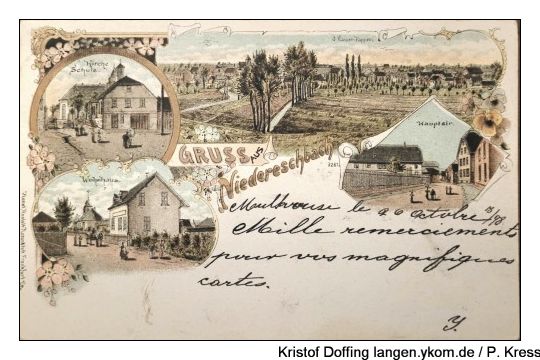 Kirche
Schule
GRUSS AUS
Niedereschbach
Hauptstr.
Mulhouse le 26 Octobre
Mille remerciements
pour vos magnifiques
cartes.
Y.
Kristof Doffing langen.ykom.de / P. Kress